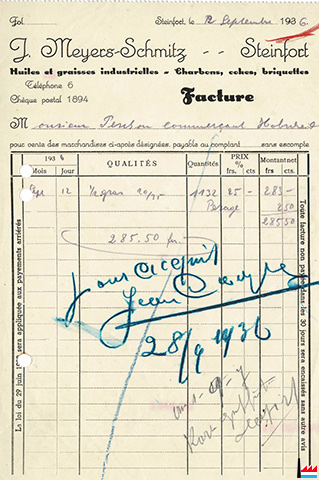 Fol.
Steinfort, le 12 Septembre 1936
J. Meyers-Schmitz -- Steinfort
Huiles et graisses industrielles - Charbons, cokes, briquettes
Téléphone 6
Chèque postal 1894
Facture
Monsieur commerçant
pour vente des marchandises ci-après désignées, payable au comptant sans escompte
1936
Mois Jour QUALITÉS Quantités PRIX frs. cts Montant net frs. cts
12 1132 25 - 283 -
Pesage 2 50
285 50
285.50 frs.
Pour acquit
Jean
28/9 1936
La loi du 29 juin sera appliquée aux payements arriérés
Toute facture non payée dans les 30 jours sera encaissée sans autre avis